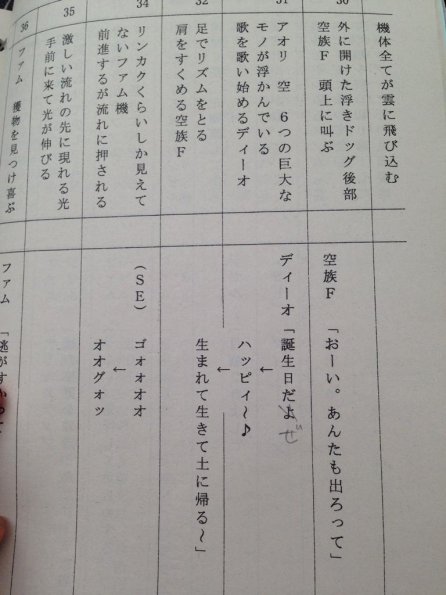 機体全てが雲に飛び込む
30
外に開けた浮きドッグ後部
空族F 頭上に叫ぶ
空族F 「おーい。あんたも出ろって」
31
アオリ 空 6つの巨大な
モノが浮かんでいる
歌を歌い始めるディーオ
ディーオ「誕生日だよ
ぜ
←
ハッピィ〜♪
←
32
足でリズムをとる
肩をすくめる空族F
生まれて生きて土に帰る〜」
34
リンカクくらいしか見えて
ないファム機
前進するが流れに押される
(SE) ゴォォオオ
←
オオグオッ
35
激しい流れの先に現れる光
手前に来て光が伸びる
36
ファム 獲物を見つけ喜ぶ
ファム 「逃がすかっ